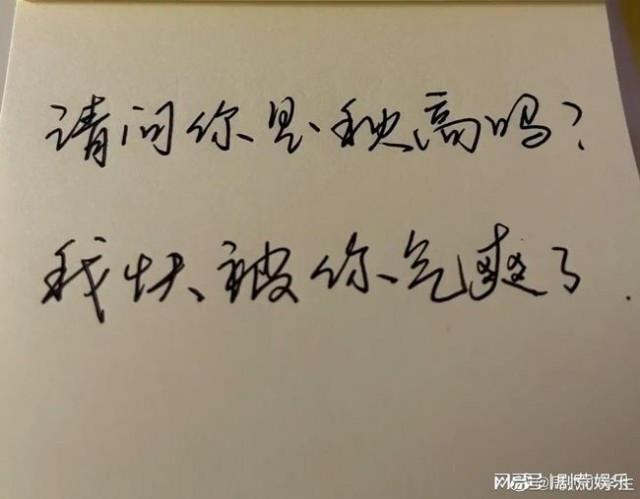 请问你是秋高吗?
我快被你气爽了.
搜狐号|剧荒娱乐